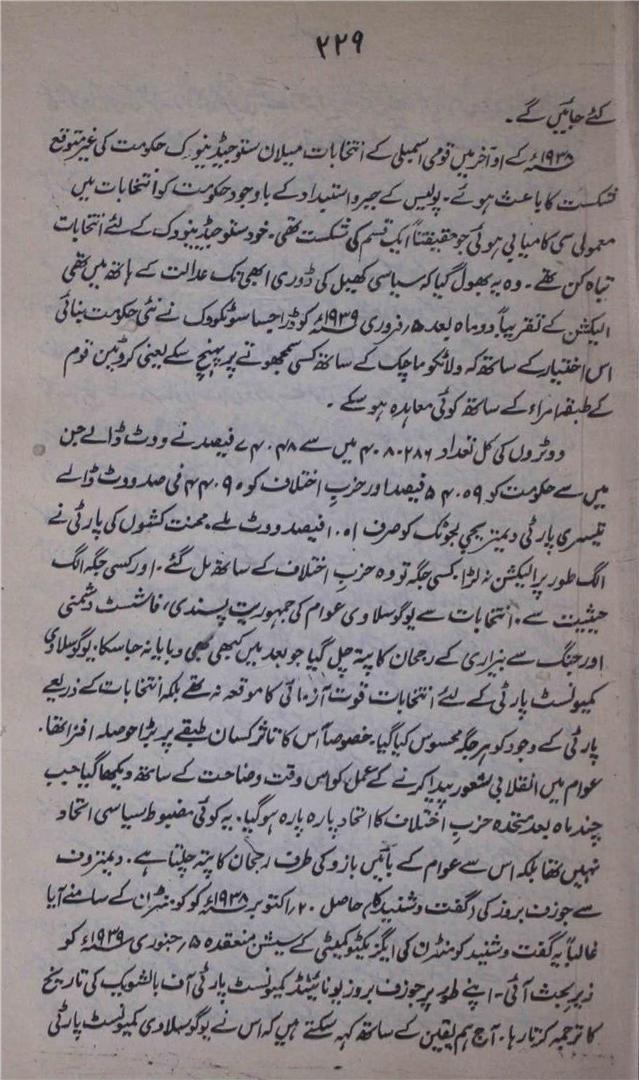 ۲۲۹
کئے جائیں گے۔
۱۹۳۸ء کے اوآخر میں قومی اسمبلی کے انتخابات میلان ستوجیڈینوک حکومت کی غیر متوقع
شکست کا باعث ہوئے۔ پولیس کے جبر و استبداد کے باوجود حکومت کو انتخابات میں
معمولی سی کامیابی ہوئی جو حقیقتاً ایک قسم کی شکست تھی۔ خود ستوجیڈینودک کے لئے انتخابات
تباہ کن تھے۔ وہ یہ بھول گیا کہ سیاسی کھیل کی ڈوری ابھی تک عدالت کے ہاتھ میں تھی
الیکشن کے تقریباً دو ماہ بعد ۵ر فروری ۱۹۳۹ء کو ڈراجسا سوٹکووک نے نئی حکومت بنائی
اس اختیار کے ساتھ کہ ولاٹکو ماچک کے ساتھ کسی سمجھوتے پر پہنچ سکے یعنی کروٹین قوم
کے طبقہ امراء کے ساتھ کوئی معاہدہ ہو سکے۔
ووٹروں کی کل تعداد ۴۰۸۰۲۸۶ میں سے ۷۴.۴۸ فیصد نے ووٹ ڈالے جن
میں سے حکومت کو ۵۴.۰۹ فیصد اور حزبِ اختلاف کو ۴۴.۹۰ فی صد ووٹ ڈالے
تیسری پارٹی دیمتریجی لجوٹک کو صرف ۱.۰۱ فیصد ووٹ ملے۔ محنت کشوں کی پارٹی نے
الگ طور پر الیکشن نہ لڑا۔ کسی جگہ تو وہ حزبِ اختلاف کے ساتھ مل گئے۔ اور کسی جگہ الگ
حیثیت سے۔ انتخابات سے یوگوسلاوی عوام کی جمہوریت پسندی، فاشسٹ دشمنی
اور جنگ سے بیزاری کے رجحان کا پتہ چل گیا جو بعد میں کبھی بھی دبایا نہ جا سکا۔ یوگوسلاوی
کمیونسٹ پارٹی کے لئے انتخابات قوت آزمائی کا موقعہ نہ تھے بلکہ انتخابات کے ذریعے
پارٹی کے وجود کو ہر جگہ محسوس کیا گیا۔ خصوصاً اس کا تاثر کسان طبقے پر بڑا حوصلہ افزا تھا۔
عوام میں انقلابی شعور پیدا کرنے کے عمل کو اس وقت وضاحت کے ساتھ دیکھا گیا جب
چند ماہ بعد متحدہ حزبِ اختلاف کا اتحاد پارہ پارہ ہو گیا۔ یہ کوئی مضبوط سیاسی اتحاد
نہیں تھا بلکہ اس سے عوام کے بائیں بازو کی طرف رجحان کا پتہ چلتا ہے۔ دیمتروف
سے جوزف بروز کی گفت و شنید کا حاصل ۲۰ر اکتوبر ۱۹۳۸ء کو کومنٹرن کے سامنے آیا
غالباً یہ گفت و شنید کومنٹرن کی ایگزیکٹو کمیٹی کے سیشن منعقدہ ۵ر جنوری ۱۹۳۹ء کو
زیر بحث آئی۔ اپنے طور پر جوزف بروز یونائیٹڈ کمیونسٹ پارٹی آف بالشویک کی تاریخ
کا ترجمہ کرتا رہا۔ آج ہم یقین کے ساتھ کہہ سکتے ہیں کہ اس نے یوگوسلاوی کمیونسٹ پارٹی